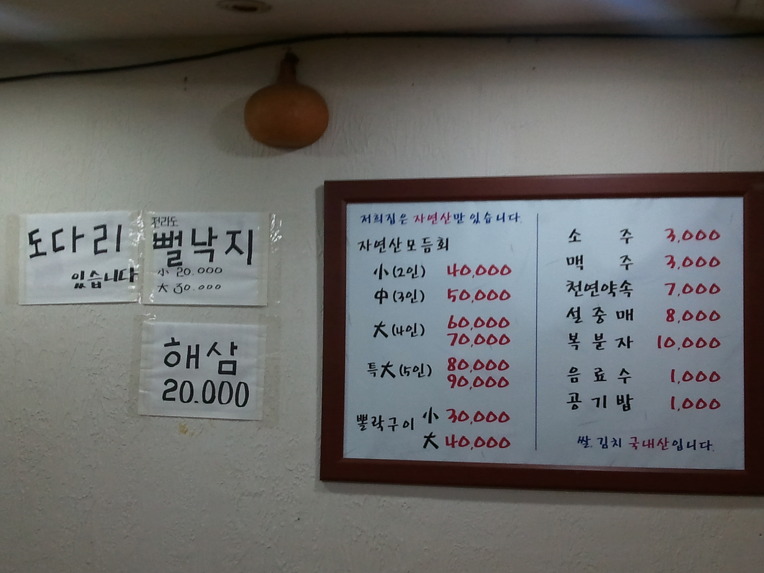 도다리
있습니다
전라도
뻘낙지
小 20.000
大 30.000
해삼
20.000
저희집은 자연산만 있습니다.
자연산모듬회
小(2인) 40,000
中(3인) 50,000
大(4인) 60,000
70,000
特大(5인) 80,000
90,000
뽈락구이 小 30,000
大 40,000
소 주 3,000
맥 주 3,000
천연약속 7,000
설중매 8,000
복분자 10,000
음료수 1,000
공기밥 1,000
쌀. 김치 국내산입니다.